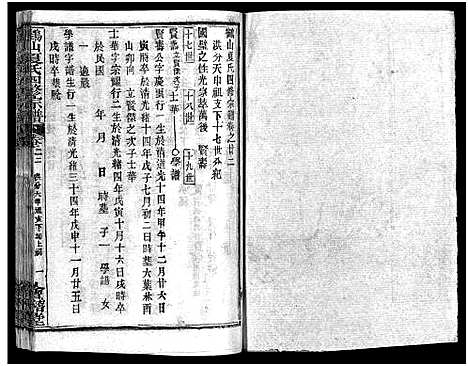 鶴山夏氏四修宗譜卷之廿二
洪分天申祖支下十七世分紀
國璧之性光宗萬後 賢壽
十七世 十八世 十九世
賢壽 立賢俟次子 士華 學譜
賢壽公字慶 行一生於清道光十四年甲午十二月廿六日
寅時卒於清光緒十四年戊子七月初二日時墓大葉林酉
山卯向 立賢俟之次子士華
士華字宗 行一生於清光緒四年戊寅十月十六日戌時卒
於民國 年 月 日 時墓 子一 學譜 女
一 適殷
學譜字諧生行一生於清光緒三十四年戊申十一月廿五日
戌時卒
鶴山夏氏四修宗譜 卷廿二 一